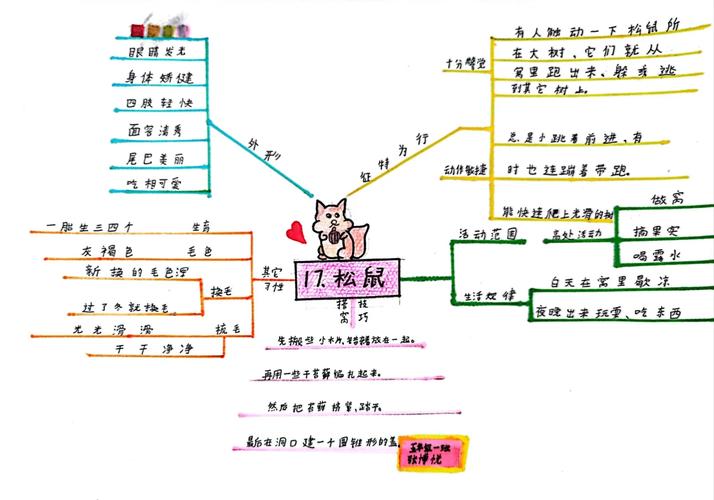 17.松鼠
外形
眼睛发光
身体娇健
四肢轻快
面容清秀
尾巴美丽
吃相可爱
行为特征
十分警觉
有人触动一下松鼠所
在大树，它们就从
窝里跑出来、躲或逃
到其它树上。
动作敏捷
总是小跳着前进、有
时也连蹦着带跑。
能快速爬上光滑的树
活动范围
高处活动
做窝
摘果实
喝露水
生活规律
白天在窝里歇凉
夜晚出来玩耍、吃东西
搭窝技巧
先搬些小木片，错落放在一起。
再用一些干苔藓编扎起来。
然后把苔藓挤紧，踏平。
最后在洞口建一个圆锥形的盖。
其它习性
生育
一胎生三四个
毛色
灰褐色
换毛
新换的毛色深
过了冬就换毛
梳毛
光光滑滑
干干净净
五年级一班
张博悦